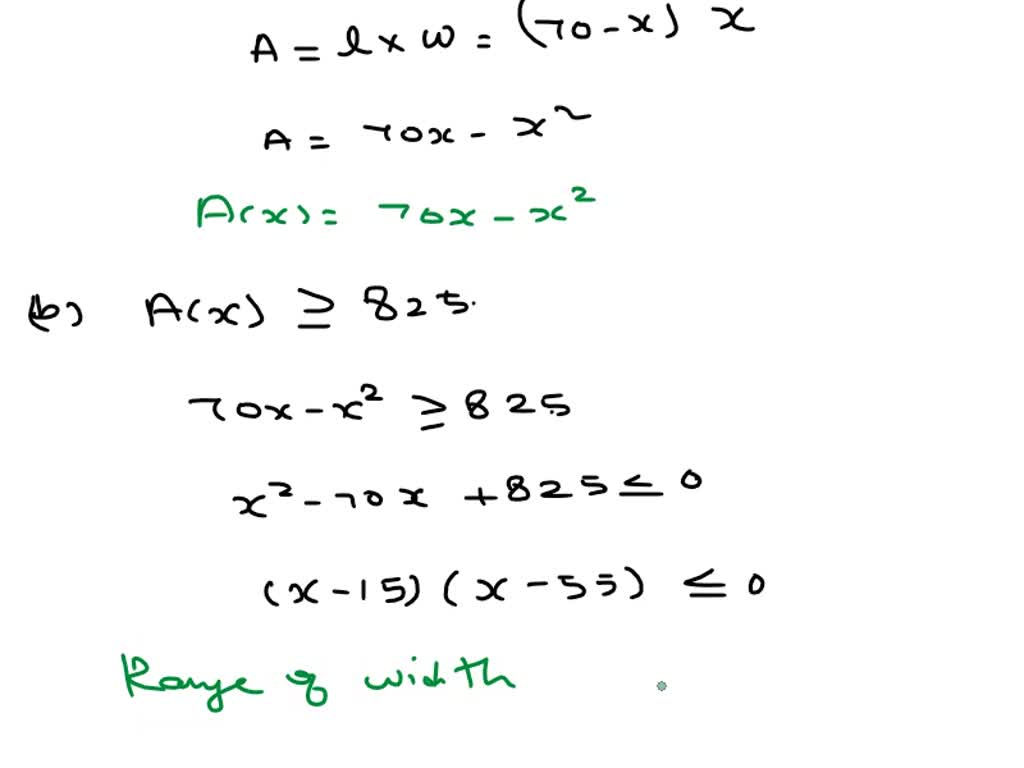 A = l × w = (70 - x) x
A = 70x - x²
A(x) = 70x - x²
(b) A(x) ≥ 825.
70x - x² ≥ 825
x² - 70x + 825 ≤ 0
(x - 15) (x - 55) ≤ 0
Range of width